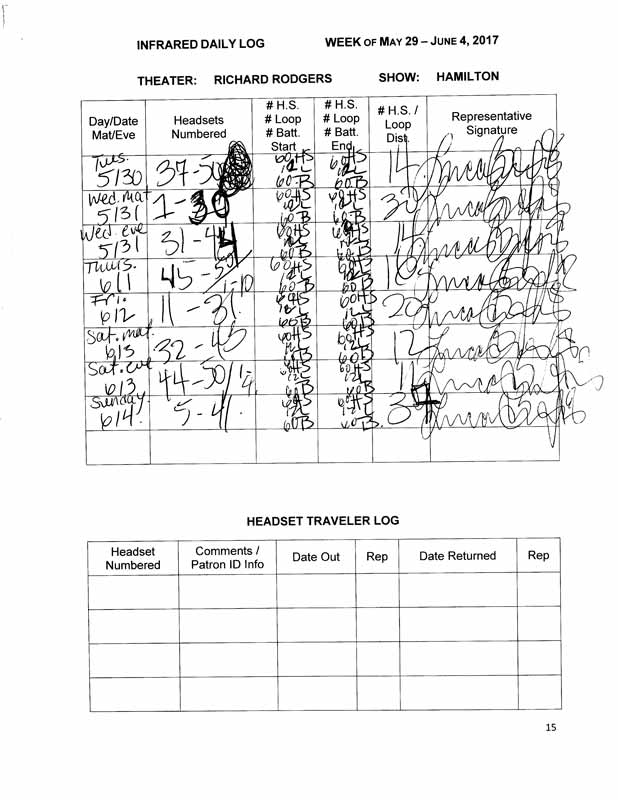 INFRARED DAILY LOG WEEK OF MAY 29 – JUNE 4, 2017
THEATER: RICHARD RODGERS SHOW: HAMILTON
Day/Date Mat/Eve Headsets Numbered # H.S. # Loop # Batt. Start # H.S. # Loop # Batt. End # H.S. / Loop Dist. Representative Signature
Tues. 5/30 37-50 60HS 12L 60B 60HS 12L 60B 14
Wed. mat 5/31 1-30 60HS 12L 60B 60HS 12L 60B 30
Wed. eve 5/31 31-44 60HS 12L 60B 60HS 12L 60B 14
Thurs. 6/1 45-50/ 1-10 60HS 12L 60B 60HS 12L 60B
Fri. 6/2 11-31. 60HS 12L 60B 60HS 12L 60B 20
Sat. mat. 6/3 32-43 60HS 12L 60B 60HS 12L 60B 12
Sat. eve 6/3 44-50/1-4. 60HS 12L 60B 60HS 12L 60B 11
Sunday 6/4. 5-41. 60HS 12L 60B 60HS 12L 60B. 34
HEADSET TRAVELER LOG
Headset Numbered Comments / Patron ID Info Date Out Rep Date Returned Rep
15